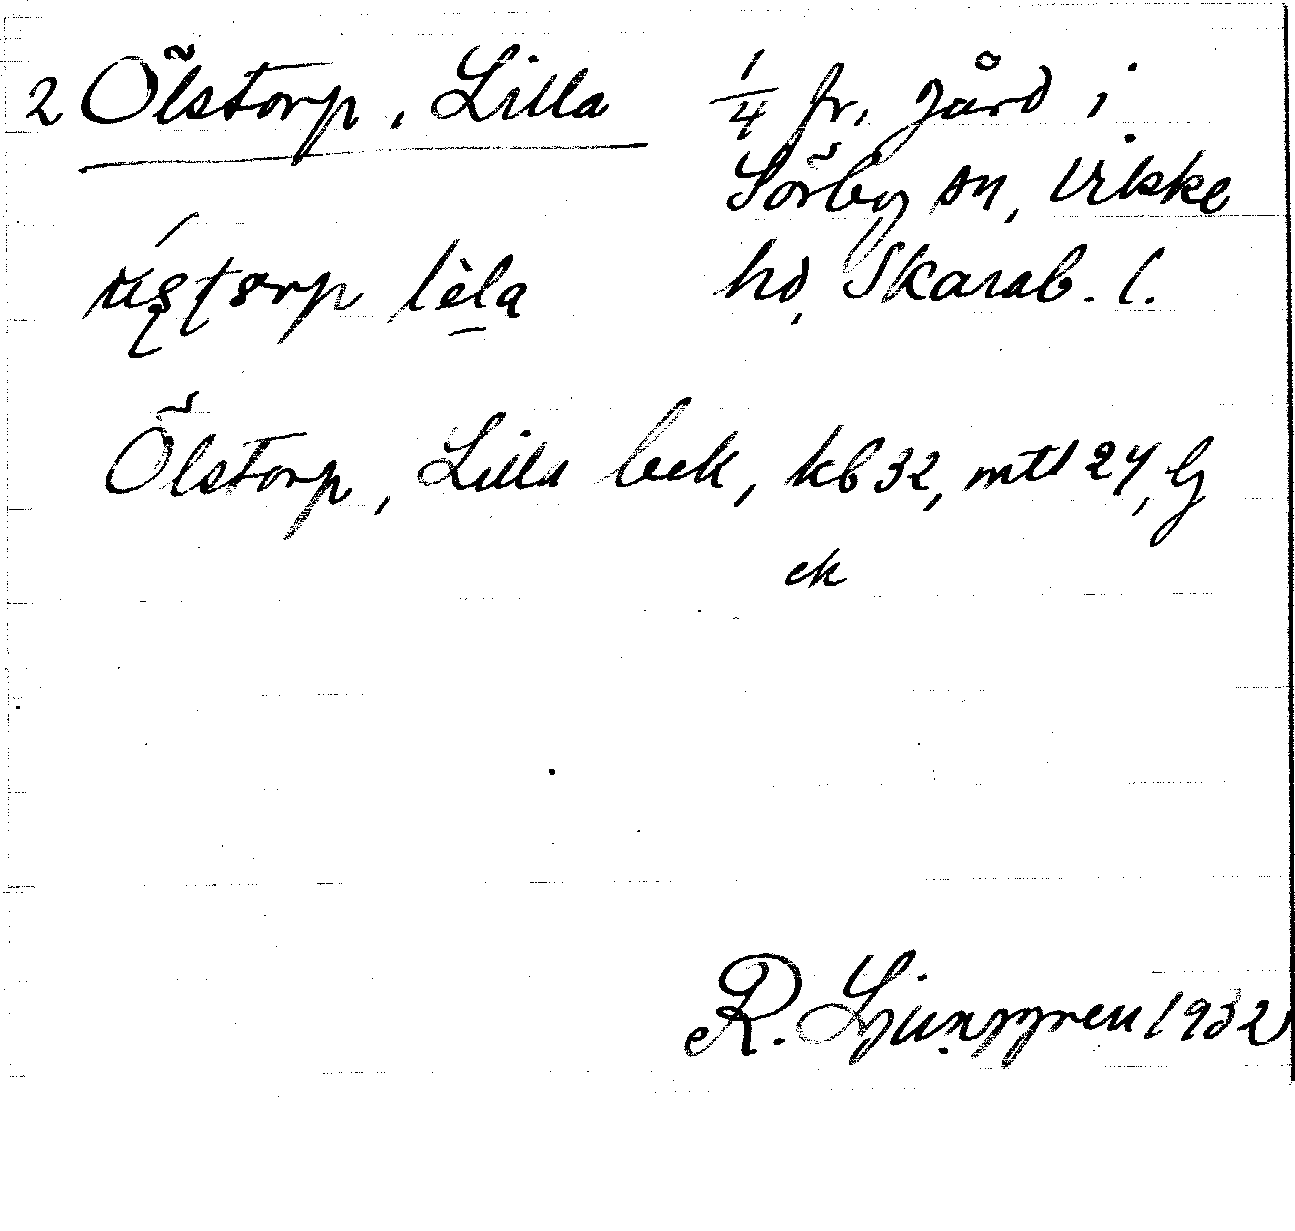 2 Ölstorp, Lilla
1/4 fr. gård i
Sörby sn, Vilske
hd, Skarab. l.
lèla
Ölstorp, Lilla bek, kb 32, mtl 24, Lj
ek
R. Ljunggren 1932